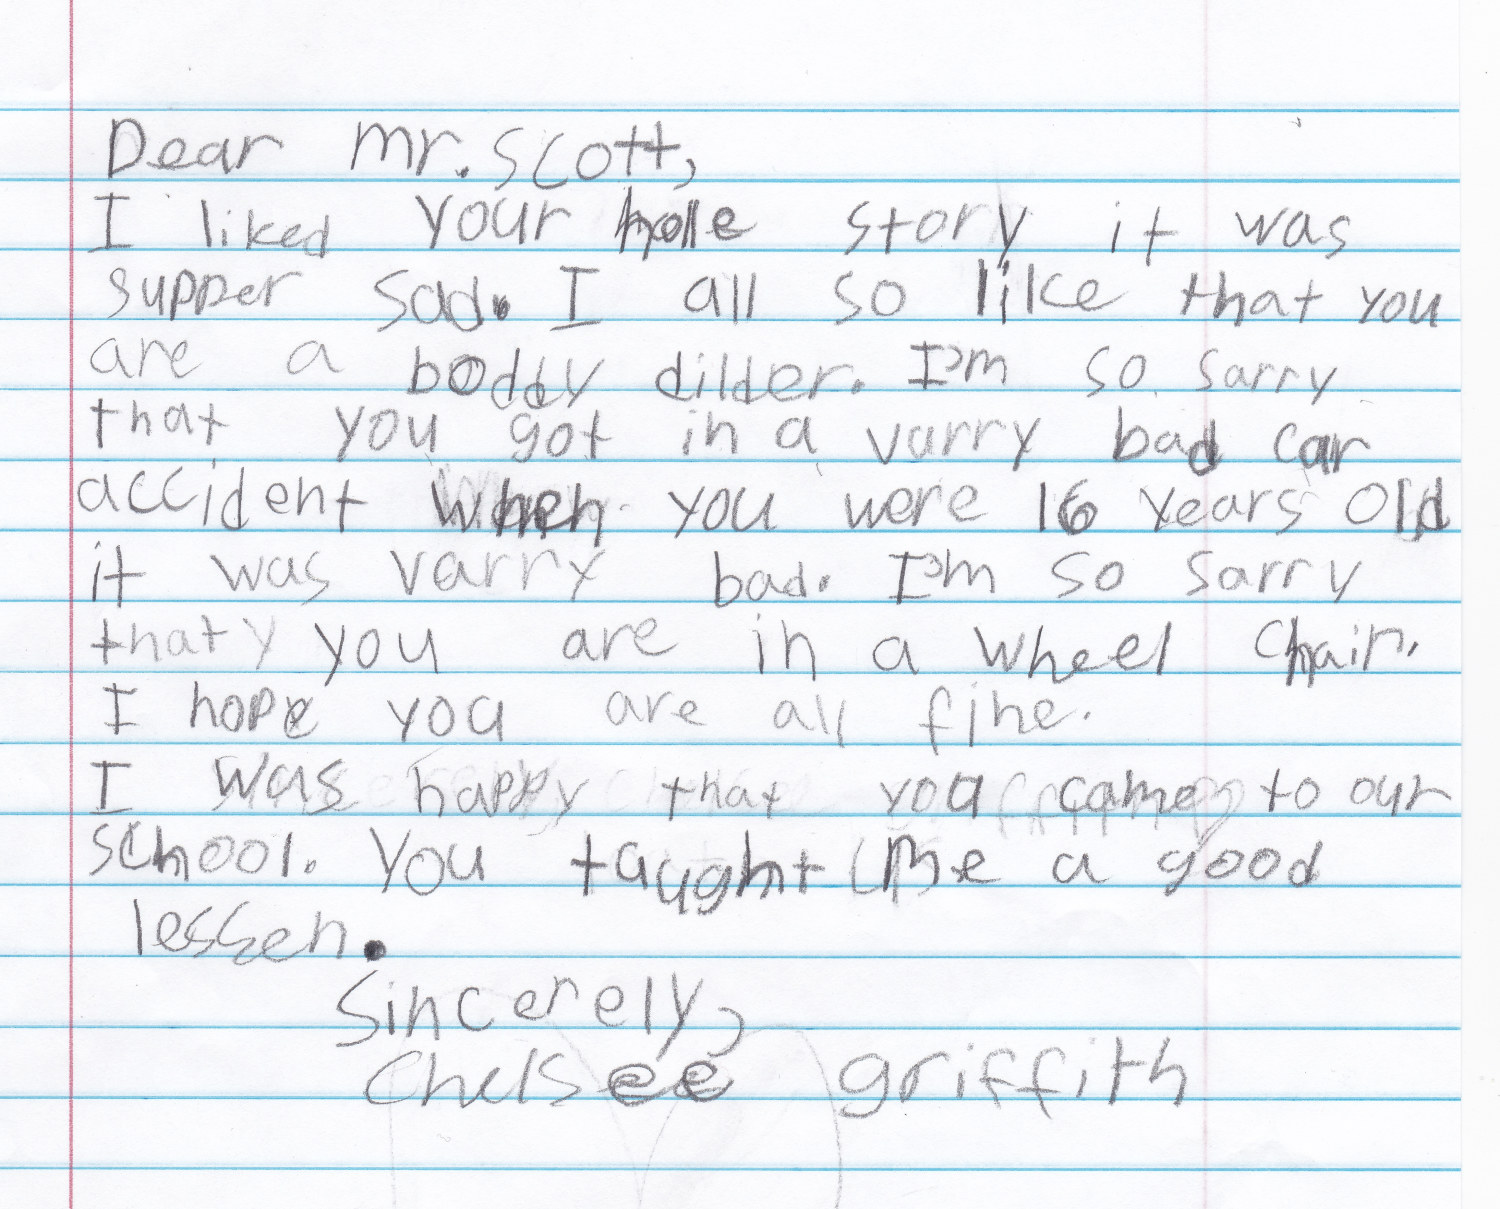 Dear Mr. Scott,
I liked your hole story it was
supper sad. I all so like that you
are a boddy dilder. I'm so sarry
that you got in a varry bad car
accident when you were 16 years old
it was varry bad. I'm so sarry
that y you are in a wheel chair.
I hope you are all fine.
I was happy that you came to our
school. You taught me a good
lessen.
Sincerely,
Chelsee griffith